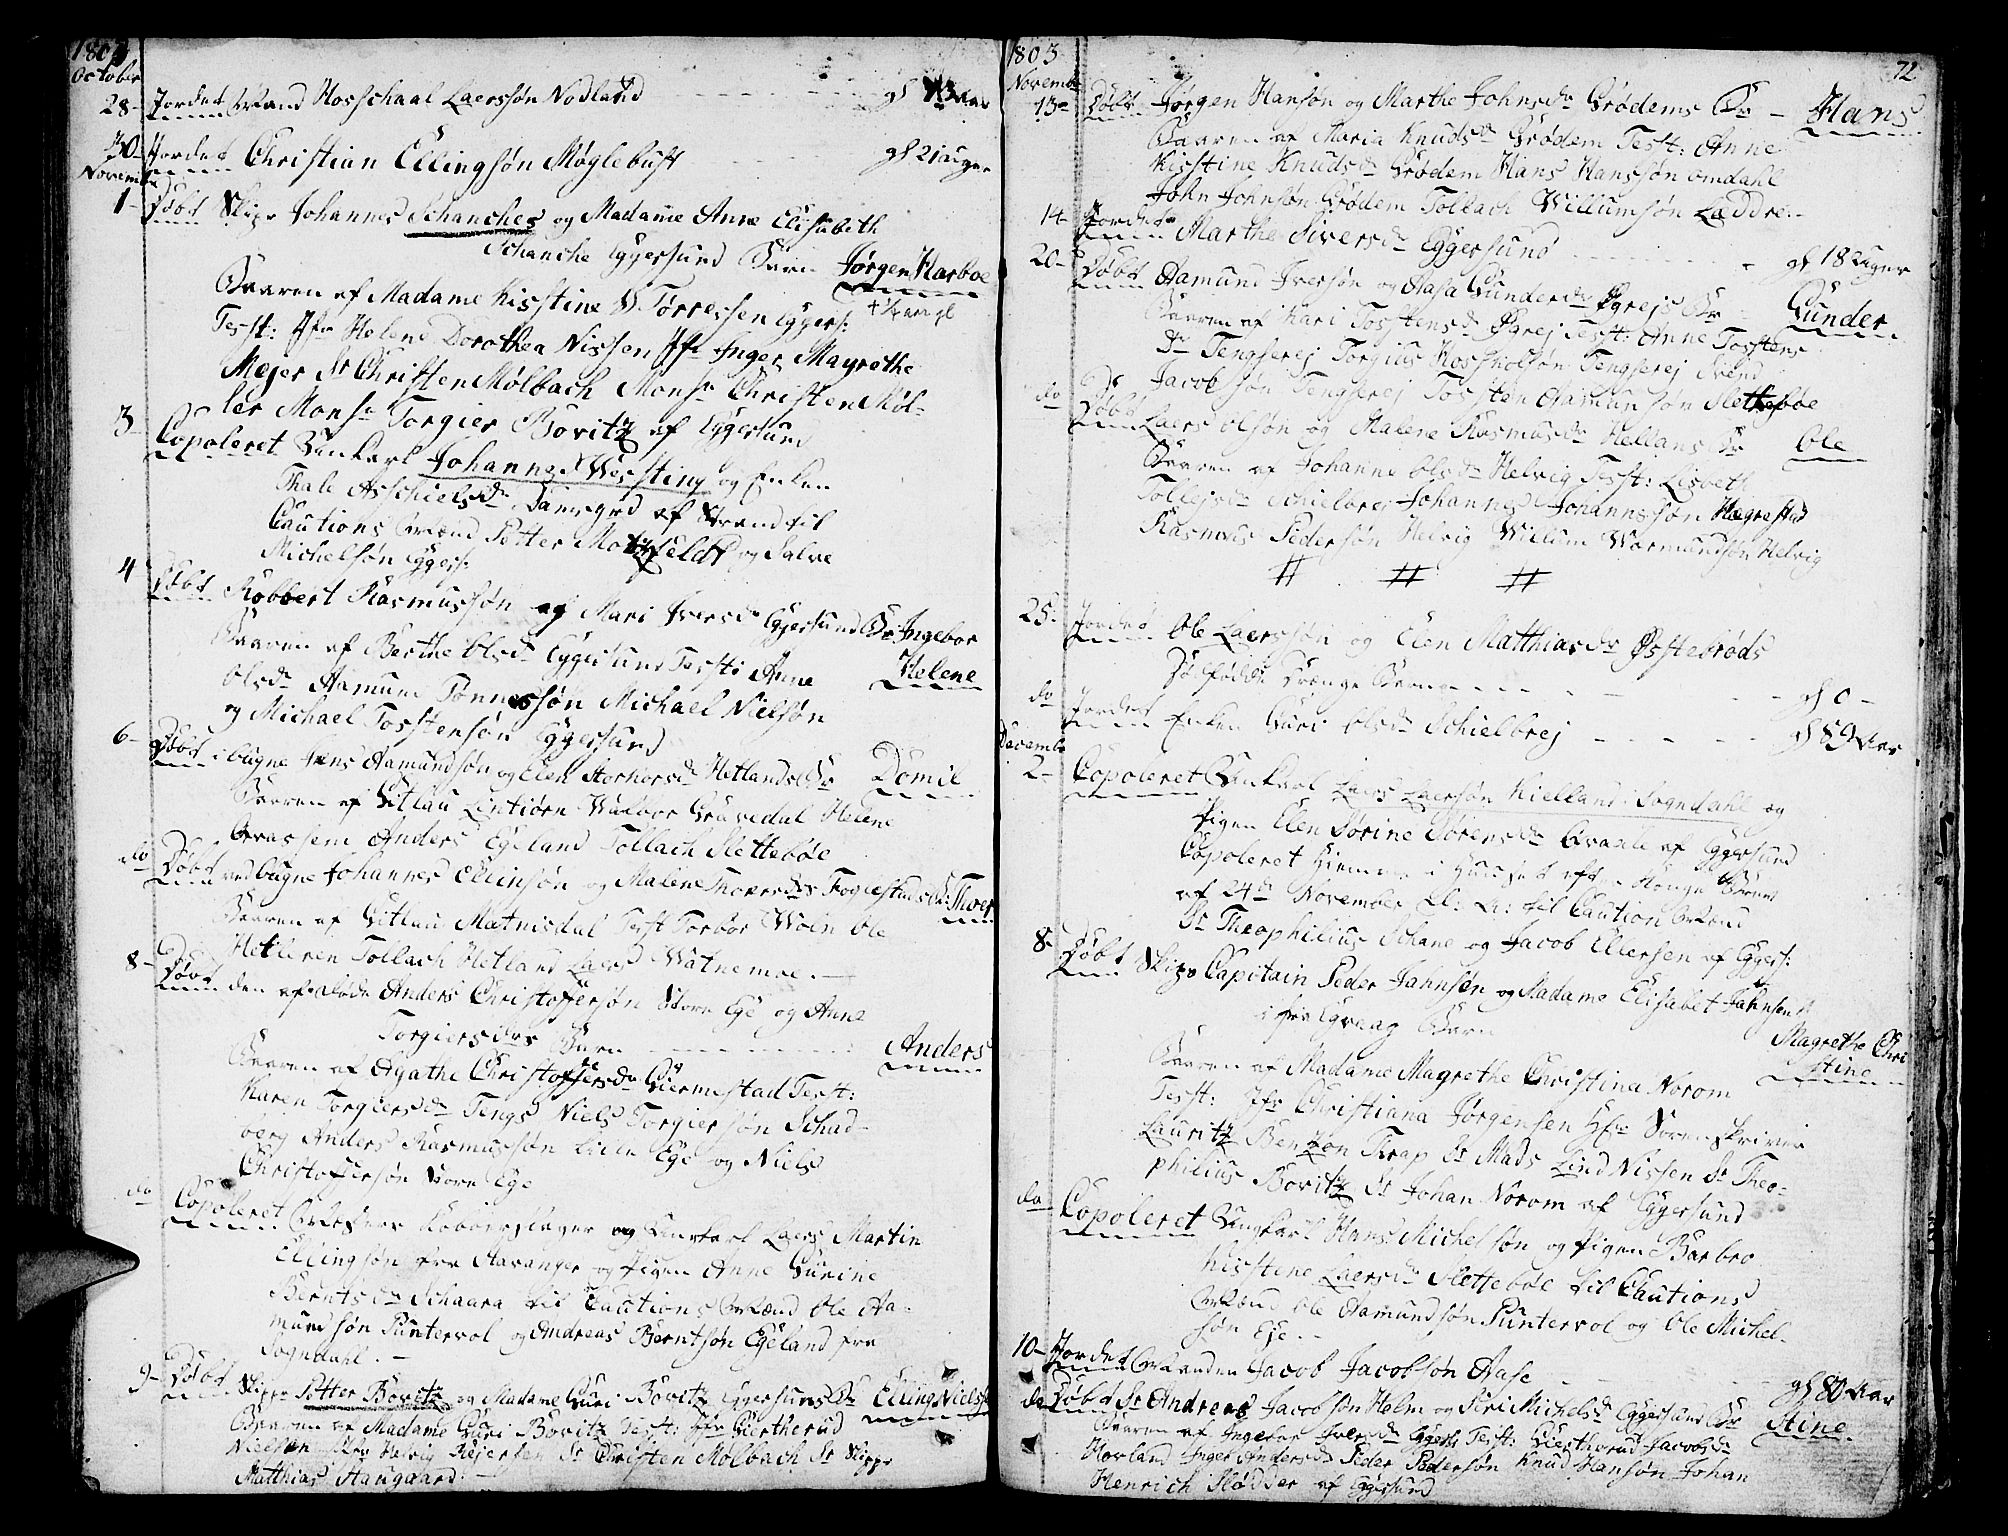 1803
October
28- Jordet Mand Hosschaal Laerssøn Nodland gl 73 Aar
30- Jordet Christian Ellingsøn Møglebust gl 21 uger
Novemb
1- Døbt Skipr Johannes Schanches og Madame Anne Elisabeth
Schanche Eggersund Barn Jørgen Harboe
Baaren af Madame Kisstine D Tørressen Eggers:
Test: Jfr Helene Dorothea Nissen Jfr Inger Magrethe
Mejer Sr Christen Mølbach Monsr Christen Møl-
ler Monsr Torgier Bovitz af Eggersund
3- Copoleret Unkarl Johannes Wessting og Enken
Thale Asschielsdr af Strand til
Cautions Mænd Petter Motzfeldt og Salve
Michelsøn Eggers:
4 Døbt Robbert Rasmussøn og Mari Iversdr Eggersund Br Ingebor
Baaren af Berthe Olsdr Eggersund Testi Anne Helene
Olsdr Aamund Tonnessøn Michael Nielsøn
og Michael Tosstensøn Eggersund
6- Døbt i bugne Jens Aamundsøn og Elen Storkorsdr Hetlands Br Domil
Baaren af Gitlau Lintiørn Walbor Gravedal Helene
Grassem Anders Egeland Tollach Slettebøe
do Døbt ved bugne Johannes Ellinsøn og Malene Thorersdrs Fogiestads Br: Thoer
Baaren af Gitlau Matnisdal Test Torbor Woin Ole
Hetleren Tollach Hetland Laers Watnemoe.-
8- Døbt den af døde Anders Christoffersøn Store Ege og Anne
Torgiersdrs Barn Anders
Baaren af Agathe Christoffersdr Giermestad Test:
Karen Torgiersdr Tengs Niels Torgiersøn Schad-
berg Anders Rasmussøn Lille Ege og Niels
Christoffersøn Store Ege
do Copoleret Kobberslager og Unkarl Laers Martin
Ellingsøn fra Stavanger og Pigen Anne Gurine
Berntsdr Schaara til Cautions Mænd Ole Aa-
mundsøn Puntervol og Andreas Berntsøn Egeland fra
Sogndahl.-
9- Døbt Skippr Petter Bovitz og Madame Guri Bovitz Eggersund Br Elling Niels
Baaren af Madame Guri Bovitz Test: Jfr Giertherud
Nielsen Helvig Rejersen Sr Christen Mølbach Sr Skippr
Matthias Haugaard.-
1803 72
Novembr
13- Døbt Jørgen Hansøn og Marthe Johnsdr Grødems Br - Hans
Baaren af Maria Knudsdr Grødem Test: Anne
Kisstine Knudsdr Grødem Hans Hanssøn Omdahl
John Johnsøn Grødem Tollach Willumsøn Læddre.-
14 Jordet Marthe Siversdr Eggersund gl 18 uger
20- Døbt Aamund Iversøn og Aasa Gundersdr Øgrejs Br Gunder
Baaren af Kari Tosstensdr Øgrej Test: Anne Tosstens
Dr Tengserej Torgius Hosskolsøn Tengserej Svend
Jacobsøn Tengserej Tossten Aamunsøn Slettebøe
do Døbt Laers Olsøn og Malene Rasmusdr Hellans Br Ole
Baaren af Johanne Olsdr Helvig Test: Lisbeth
Tollejsdr Schielbrej Johannes Johannssøn Hægrestad
Rasmus Pedersøn Helvig Willum Wormundsøn Helvig
# # #
25- Jordet Ole Laerssøn og Elen Matthiasdr Øsstebrøds
Dødfødde Drænge Barn gl 0 -
do Jordet Enken Guri Olsdr Schielbrej gl 89 Aar
Decembr
2- Copoleret Unkarl Laers Laersøn Kielland i Sogndahl og
Pigen Elen Sørine Sørensdr Qvaale af Eggersund
Copoleret Hiemme i Huuset efter Konge Brev
af 24de November til Caution Mænd
Sr Theophilius Schane og Jacob Ellersen af Eggers:
8- Døbt Skipr Capitain Peder Jahnsøn og Madame Elisabet Jahnsens
i fra Egvaag Barn Magrethe Chri
stine
Baaren af Madame Magrethe Christina Norom
Test: Jfr Christiana Jørgensen Hfr Sorenskriver
Lauritz Bentzon Trap Sr Mads Lind Nissen Sr Theo-
philius Bovitz Sr Johan Norom af Eggersund
do Copoleret Ungkarl Hans Michelsøn og Pigen Barbro
Kisstine Laersdr Slettebøe til Cautions
Mænd Ole Aamundsøn Puntervol og Ole Michel-
søn Eje.-
10- Jordet Manden Jacob Jacobsøn Aase gl 80 Aar
do Døbt Sr Andreas Jacobsøn Holm og Siri Michelsdr Eggersund Br Stine
Baaren af Ingebor Iversdr Eggers Test: Gierthorud Jacobsdr
Horland Inger Andersdr Peder Pedersøn Knud Hansøn Johan
Henrich Slødder af Eggersund